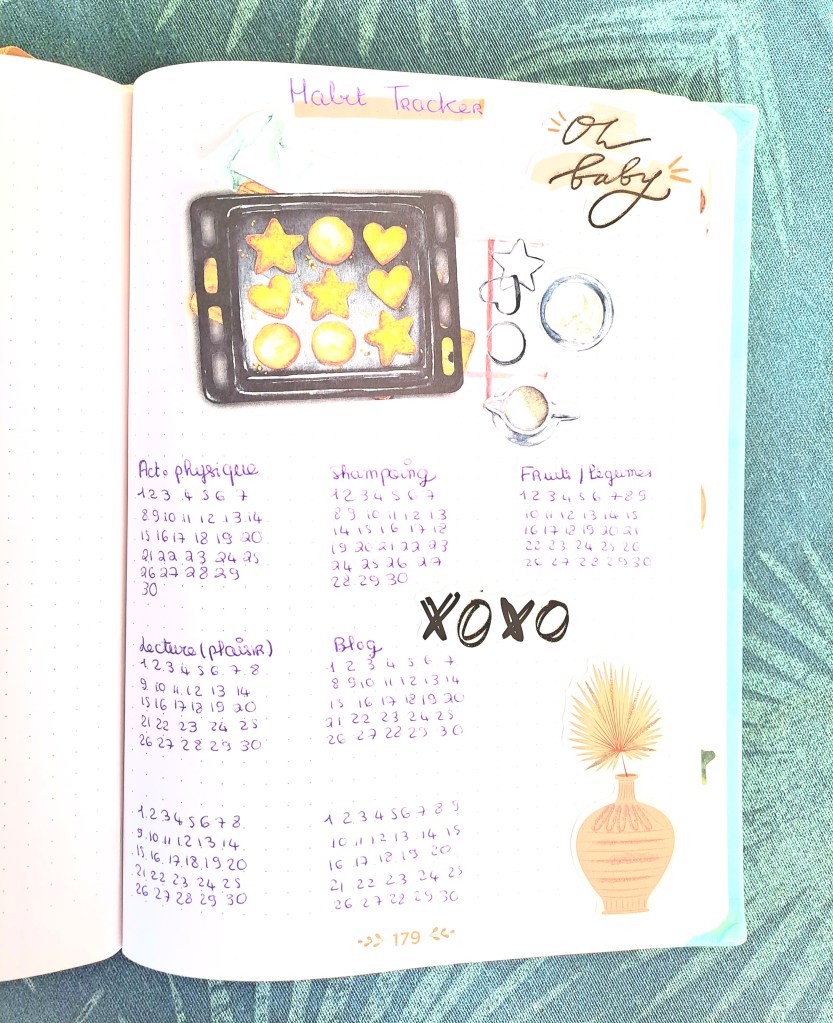 Habit Tracker
Oh
baby
Act. physique
1 2 3 4 5 6 7
8 9 10 11 12 13 14
15 16 17 18 19 20
21 22 23 24 25
26 27 28 29
30
Shampoing
1 2 3 4 5 6 7
8 9 10 11 12 13
14 15 16 17 18
19 20 21 22 23
24 25 26 27
28 29 30
Fruits / Légumes
1 2 3 4 5 6 7 8 9
10 11 12 13 14 15
16 17 18 19 20 21
22 23 24 25 26
26 27 28 29 30
XOXO
Lecture (plaisir)
1 2 3 4 5 6 7 8
9 10 11 12 13 14
15 16 17 18 19 20
21 22 23 24 25
26 27 28 29 30
Blog
1 2 3 4 5 6 7
8 9 10 11 12 13 14
15 16 17 18 19 20
21 22 23 24 25
26 27 28 29 30
1 2 3 4 5 6 7 8
9 10 11 12 13 14
15 16 17 18 19 20
21 22 23 24 25
26 27 28 29 30
1 2 3 4 5 6 7 8 9
10 11 12 13 14 15
16 17 18 19 20
21 22 23 24 25
26 27 28 29 30
179